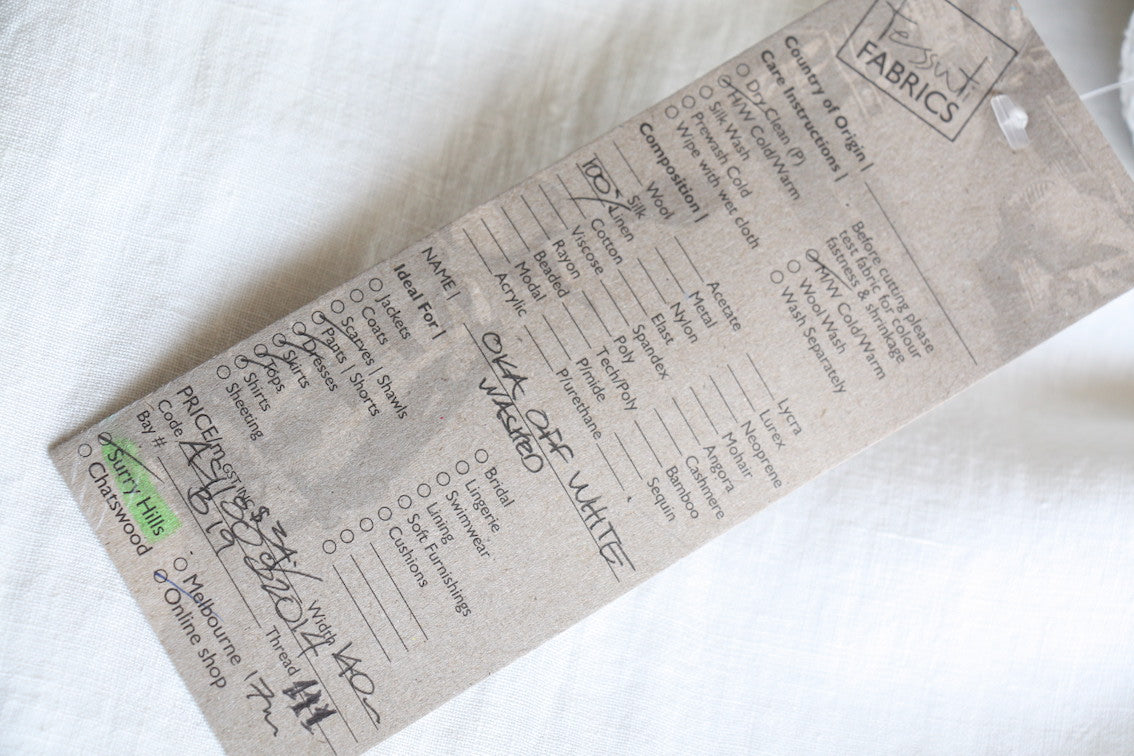 Tessuti
FABRICS
Country of Origin |
Care Instructions |
Dry Clean (P)
H/W Cold/Warm
Silk Wash
Prewash Cold
Wipe with wet cloth
Before cutting please
test fabric for colour
fastness & shrinkage
M/W Cold/Warm
Wool Wash
Wash Separately
Composition |
Wool
Silk
100% Linen
Cotton
Viscose
Rayon
Beaded
Modal
Acrylic
Acetate
Metal
Nylon
Elast
Spandex
Poly
Tech/Poly
P/mide
P/urethane
Lycra
Lurex
Neoprene
Mohair
Angora
Cashmere
Bamboo
Sequin
NAME | OKA OFF WHITE
WASHED
Ideal For |
Jackets
Coats
Scarves | Shawls
Pants | Shorts
Dresses
Skirts
Tops
Shirts
Sheeting
Bridal
Lingerie
Swimwear
Lining
Soft Furnishings
Cushions
PRICE/m GST IN $ Width 140
Code
Bay # B19 Thread
Surry Hills
Chatswood
Melbourne
Online shop 17m